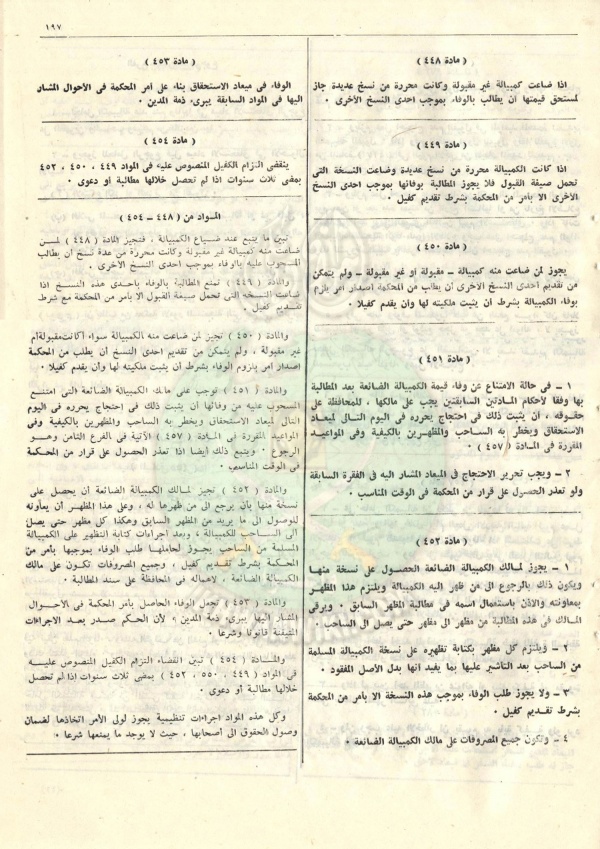 ١٩٧
( مادة ٤٤٨ )
اذا ضاعت كمبيالة غير مقبولة وكانت محررة من نسخ عديدة جاز
لمستحق قيمتها أن يطالب بالوفاء بموجب احدى النسخ الأخرى ٠
( مادة ٤٤٩ )
اذا كانت الكمبيالة محررة من نسخ عديدة وضاعت النسخة التى
تحمل صيغة القبول فلا يجوز المطالبة بوفائها بموجب احدى النسخ
الأخرى الا بأمر من المحكمة بشرط تقديم كفيل ٠
( مادة ٤٥٠ )
يجوز لمن ضاعت منه كمبيالة ــ مقبولة أو غير مقبولة ــ ولم يتمكن
من تقديم احدى النسخ الأخرى أن يطلب من المحكمة اصدار أمر يلزم
بوفاء الكمبيالة بشرط أن يثبت ملكيته لها وأن يقدم كفيلا ٠
( مادة ٤٥١ )
١ ــ فى حالة الامتناع عن وفاء قيمة الكمبيالة الضائعة بعد المطالبة
بها وفقا لأحكام المادتين السابقتين يجب على مالكها ، للمحافظة على
حقوقه ، أن يثبت ذلك فى احتجاج يحرره فى اليوم التالى لميعاد
الاستحقاق ويخطر به الساحب والمظهرين بالكيفية وفى المواعيد
المقررة فى المادة ( ٤٥٧ ) ٠
٢ ــ ويجب تحرير الاحتجاج فى الميعاد المشار اليه فى الفقرة السابقة
ولو تعذر الحصول على قرار من المحكمة فى الوقت المناسب ٠
( مادة ٤٥٢ )
١ ــ يجوز لمالك الكمبيالة الضائعة الحصول على نسخة منها
ويكون ذلك بالرجوع الى من ظهر اليه الكمبيالة ويلتزم هذا المظهر
بمعاونته والاذن باستعمال اسمه فى مطالبة المظهر السابق ٠ ويرقى
المالك فى هذه المطالبة من مظهر الى مظهر حتى يصل الى الساحب ٠
٢ ــ ويلتزم كل مظهر بكتابة تظهيره على نسخة الكمبيالة المسلمة
من الساحب بعد التأشير عليها بما يفيد أنها بدل الأصل المفقود ٠
٣ ــ ولا يجوز طلب الوفاء بموجب هذه النسخة الا بأمر من المحكمة
بشرط تقديم كفيل ٠
٤ ــ وتكون جميع المصروفات على مالك الكمبيالة الضائعة ٠
( مادة ٤٥٣ )
الوفاء فى ميعاد الاستحقاق بناء على أمر المحكمة فى الأحوال المشار
اليها فى المواد السابقة يبرىء ذمة المدين ٠
( مادة ٤٥٤ )
ينقضى التزام الكفيل المنصوص عليه فى المواد ٤٤٩ ، ٤٥٠ ، ٤٥٢
بمضى ثلاث سنوات اذا لم تحصل خلالها مطالبة أو دعوى ٠
المواد من ( ٤٤٨ ــ ٤٥٤ )
تبين ما يتبع عند ضياع الكمبيالة ، فتجيز المادة ( ٤٤٨ ) لمن
ضاعت منه كمبيالة غير مقبولة وكانت محررة من عدة نسخ أن يطالب
المسحوب عليه بالوفاء بموجب احدى النسخ الأخرى ٠
والمادة ( ٤٤٩ ) تمنع المطالبة بالوفاء باحدى هذه النسخ اذا
ضاعت النسخة التى تحمل صيغة القبول الا بأمر من المحكمة مع شرط
تقديم كفيل ٠
والمادة ( ٤٥٠ ) تجيز لمن ضاعت منه الكمبيالة سواء أكانت مقبولة أم
غير مقبولة ، ولم يتمكن من تقديم احدى النسخ أن يطلب من المحكمة
اصدار أمر يلزم الوفاء بشرط أن يثبت ملكيته لها وأن يقدم كفيلا ٠
والمادة ( ٤٥١ ) توجب على مالك الكمبيالة الضائعة التى امتنع
المسحوب عليه من وفائها أن يثبت ذلك فى احتجاج يحرره فى اليوم
التالى لميعاد الاستحقاق ويخطر به الساحب والمظهرين بالكيفية وفى
المواعيد المقررة فى المادة ( ٤٥٧ ) الآتية فى الفرع الثامن وهو
الرجوع ٠ ويتبع ذلك أيضا اذا تعذر الحصول على قرار من المحكمة
فى الوقت المناسب ٠
والمادة ( ٤٥٢ ) تجيز لمالك الكمبيالة الضائعة أن يحصل على
نسخة منها بأن يرجع الى من ظهرها له ، وعلى هذا المظهر أن يعاونه
للوصول الى ما يريد من المظهر السابق وهكذا كل مظهر حتى يصل
الى الساحب للكمبيالة ، وبعد اجراءات كتابة التظهير على الكمبيالة
المسلمة من الساحب يجوز لحاملها طلب الوفاء بموجبها بأمر من
المحكمة بشرط تقديم كفيل ، وجميع المصروفات تكون على مالك
الكمبيالة الضائعة ، لاهماله فى المحافظة على سند المطالبة ٠
والمادة ( ٤٥٣ ) تجعل الوفاء الحاصل بأمر المحكمة فى الأحوال
المشار اليها يبرىء ذمة المدين ، لأن الحكم صدر بعد الاجراءات
المتيقنة قانونا وشرعا ٠
والمادة ( ٤٥٤ ) تبين انقضاء التزام الكفيل المنصوص عليه
فى المواد ( ٤٤٩ ، ٥٥٠ ، ٤٥٢ ) بمضى ثلاث سنوات اذا لم تحصل
خلالها مطالبة أو دعوى ٠
وكل هذه المواد اجراءات تنظيمية يجوز لولى الأمر اتخاذها لضمان
وصول الحقوق الى أصحابها ، حيث لا يوجد ما يمنعها شرعا ٠